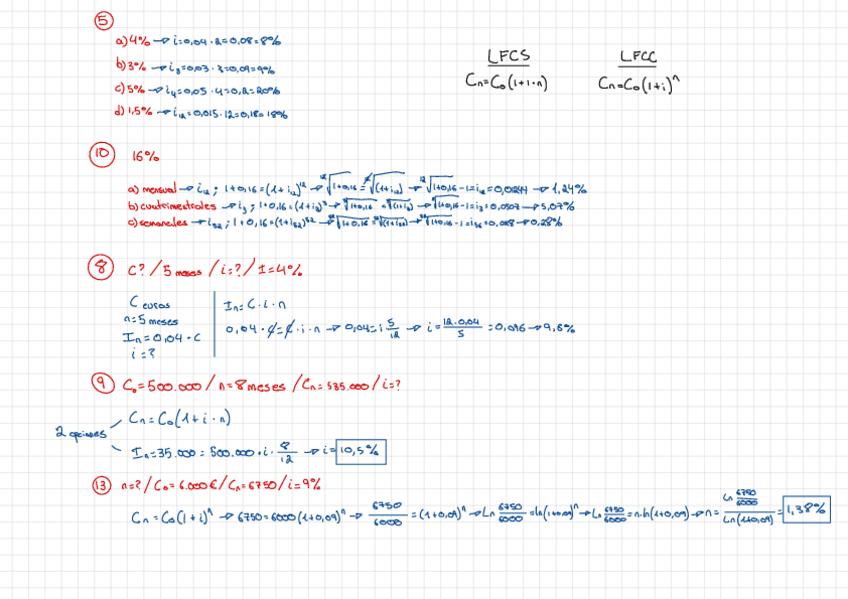 5
a) 4% → i=0,04 · 2=0,08=8%
b) 3% → i₃=0,03 · 3=0,09=9%
c) 5% → i₄=0,05 · 4=0,2=20%
d) 1,5% → i₁₂=0,015 · 12=0,18=18%
LFCS
Cn=C₀(1+i·n)
LFCC
Cn=C₀(1+i)ⁿ
10 16%
a) mensual → i₁₂; 1+0,16=(1+i₁₂)¹² → ¹²√1+0,16=¹²√(1+i₁₂) → ¹²√1+0,16-1=i₁₂=0,0124 → 1,24%
b) cuatrimestrales → i₃; 1+0,16=(1+i₃)³ → ³√1+0,16=³√(1+i₃) → ³√1+0,16-1=i₃=0,0507 → 5,07%
c) semanales → i₅₂; 1+0,16=(1+i₅₂)⁵² → ⁵²√1+0,16=⁵²√(1+i₅₂) → ⁵²√1+0,16-1=i₅₂=0,028 → 0,28%
8 C?/5 meses/i=?/I=4%
C euros
n=5 meses
In=0,04·C
i=?
In=C·i·n
0,04·C=C·i·n → 0,04=i 5/12 → i=12·0,04/5=0,096 → 9,6%
9 C₀=500.000/n=8 meses/Cn=535.000/i=?
2 opciones
Cn=C₀(1+i·n)
In=35.000=500.000·i·8/12 → i=10,5%
13 n=?/C₀=6.000€/Cn=6750/i=9%
Cn=C₀(1+i)ⁿ → 6750=6000(1+0,09)ⁿ → 6750/6000=(1+0,09)ⁿ → Ln 6750/6000=ln(1+0,09)ⁿ → Ln 6750/6000=n·ln(1+0,09) → n=Ln 6750/6000/Ln(1+0,09)=1,38%